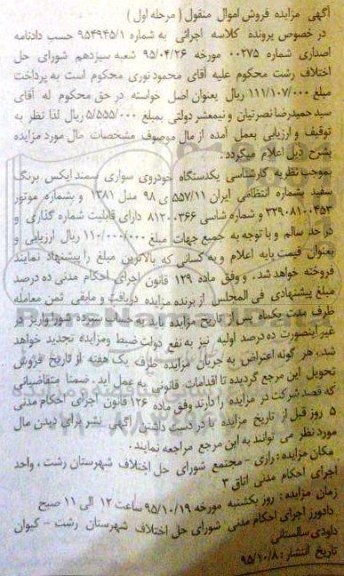 آگهی مزایده فروش اموال منقول ( مرحله اول )
در خصوص پرونده کلاسه اجرائی به شماره ۹۵۴۹۴۵/۱ حسب دادنامه
اصداری شماره ۰۰۲۷۵ مورخه ۹۵/۰۴/۲۶ شعبه سیزدهم شورای حل
اختلاف رشت محکوم علیه آقای محمود نوری محکوم است به پرداخت
مبلغ ۱۱۱/۱۰۷/۰۰۰ ریال بعنوان اصل خواسته در حق محکوم له آقای
سید حمیدرضا نصرتیان و نیمعشر دولتی بمبلغ ۵/۵۵۵/۰۰۰ ریال لذا نظر به
توقیف و ارزیابی بعمل آمده از مال موصوف مشخصات مال مورد مزایده
بشرح ذیل اعلام میگردد.
بموجب نظریه کارشناسی یکدستگاه خودروی سواری سمند ایکس برنگ
سفید بشماره انتظامی ایران ۵۵۷/۱۱ ی ۹۸ مدل ۱۳۸۱ و بشماره موتور
۳۲۹۰۸۱۰۰۴۵۳ و شماره شاسی ۸۱۲۰۰۳۶۶ دارای قابلیت شماره گذاری و
در حد سالم و با توجه به جمیع جهات مبلغ ۱۱۰/۰۰۰/۰۰۰ ریال ارزیابی و
بعنوان قیمت پایه اعلام و به کسانی که بالاترین مبلغ را پیشنهاد نمایند
فروخته خواهد شد. و وفق ماده ۱۲۹ قانون اجرای احکام مدنی ده درصد
مبلغ پیشنهادی فی المجلس از برنده مزایده دریافت و مابقی ثمن معامله
ظرف مدت یکماه از تاریخ مزایده باید به حساب سپرده شورا واریز و در
غیر اینصورت ده درصد اولیه نیز به نفع دولت ضبط و مزایده تجدید خواهد
شد، هر گونه اعتراض به جریان مزایده ظرف یک هفته از تاریخ فروش
تحویل این مرجع گردیده تا اقدامات قانونی بعمل آید. ضمنا متقاضیانی
که قصد شرکت در مزایده را دارند وفق ماده ۱۲۶ قانون اجرای احکام مدنی
۵ روز قبل از تاریخ مزایده با در دست داشتن آگهی نشر برای دیدن مال
مورد نظر می توانند به این مرجع مراجعه نمایند.
مکان مزایده: رازی - مجتمع شورای حل اختلاف شهرستان رشت، واحد
اجرای احکام مدنی اتاق ۳
زمان مزایده: روز یکشنبه مورخه ۹۵/۱۰/۱۹ ساعت ۱۲ الی ۱۱ صبح
دادورز اجرای احکام مدنی شورای حل اختلاف شهرستان رشت - کیوان
داودی سالستانی
تاریخ انتشار: ۹۵/۱۰/۸